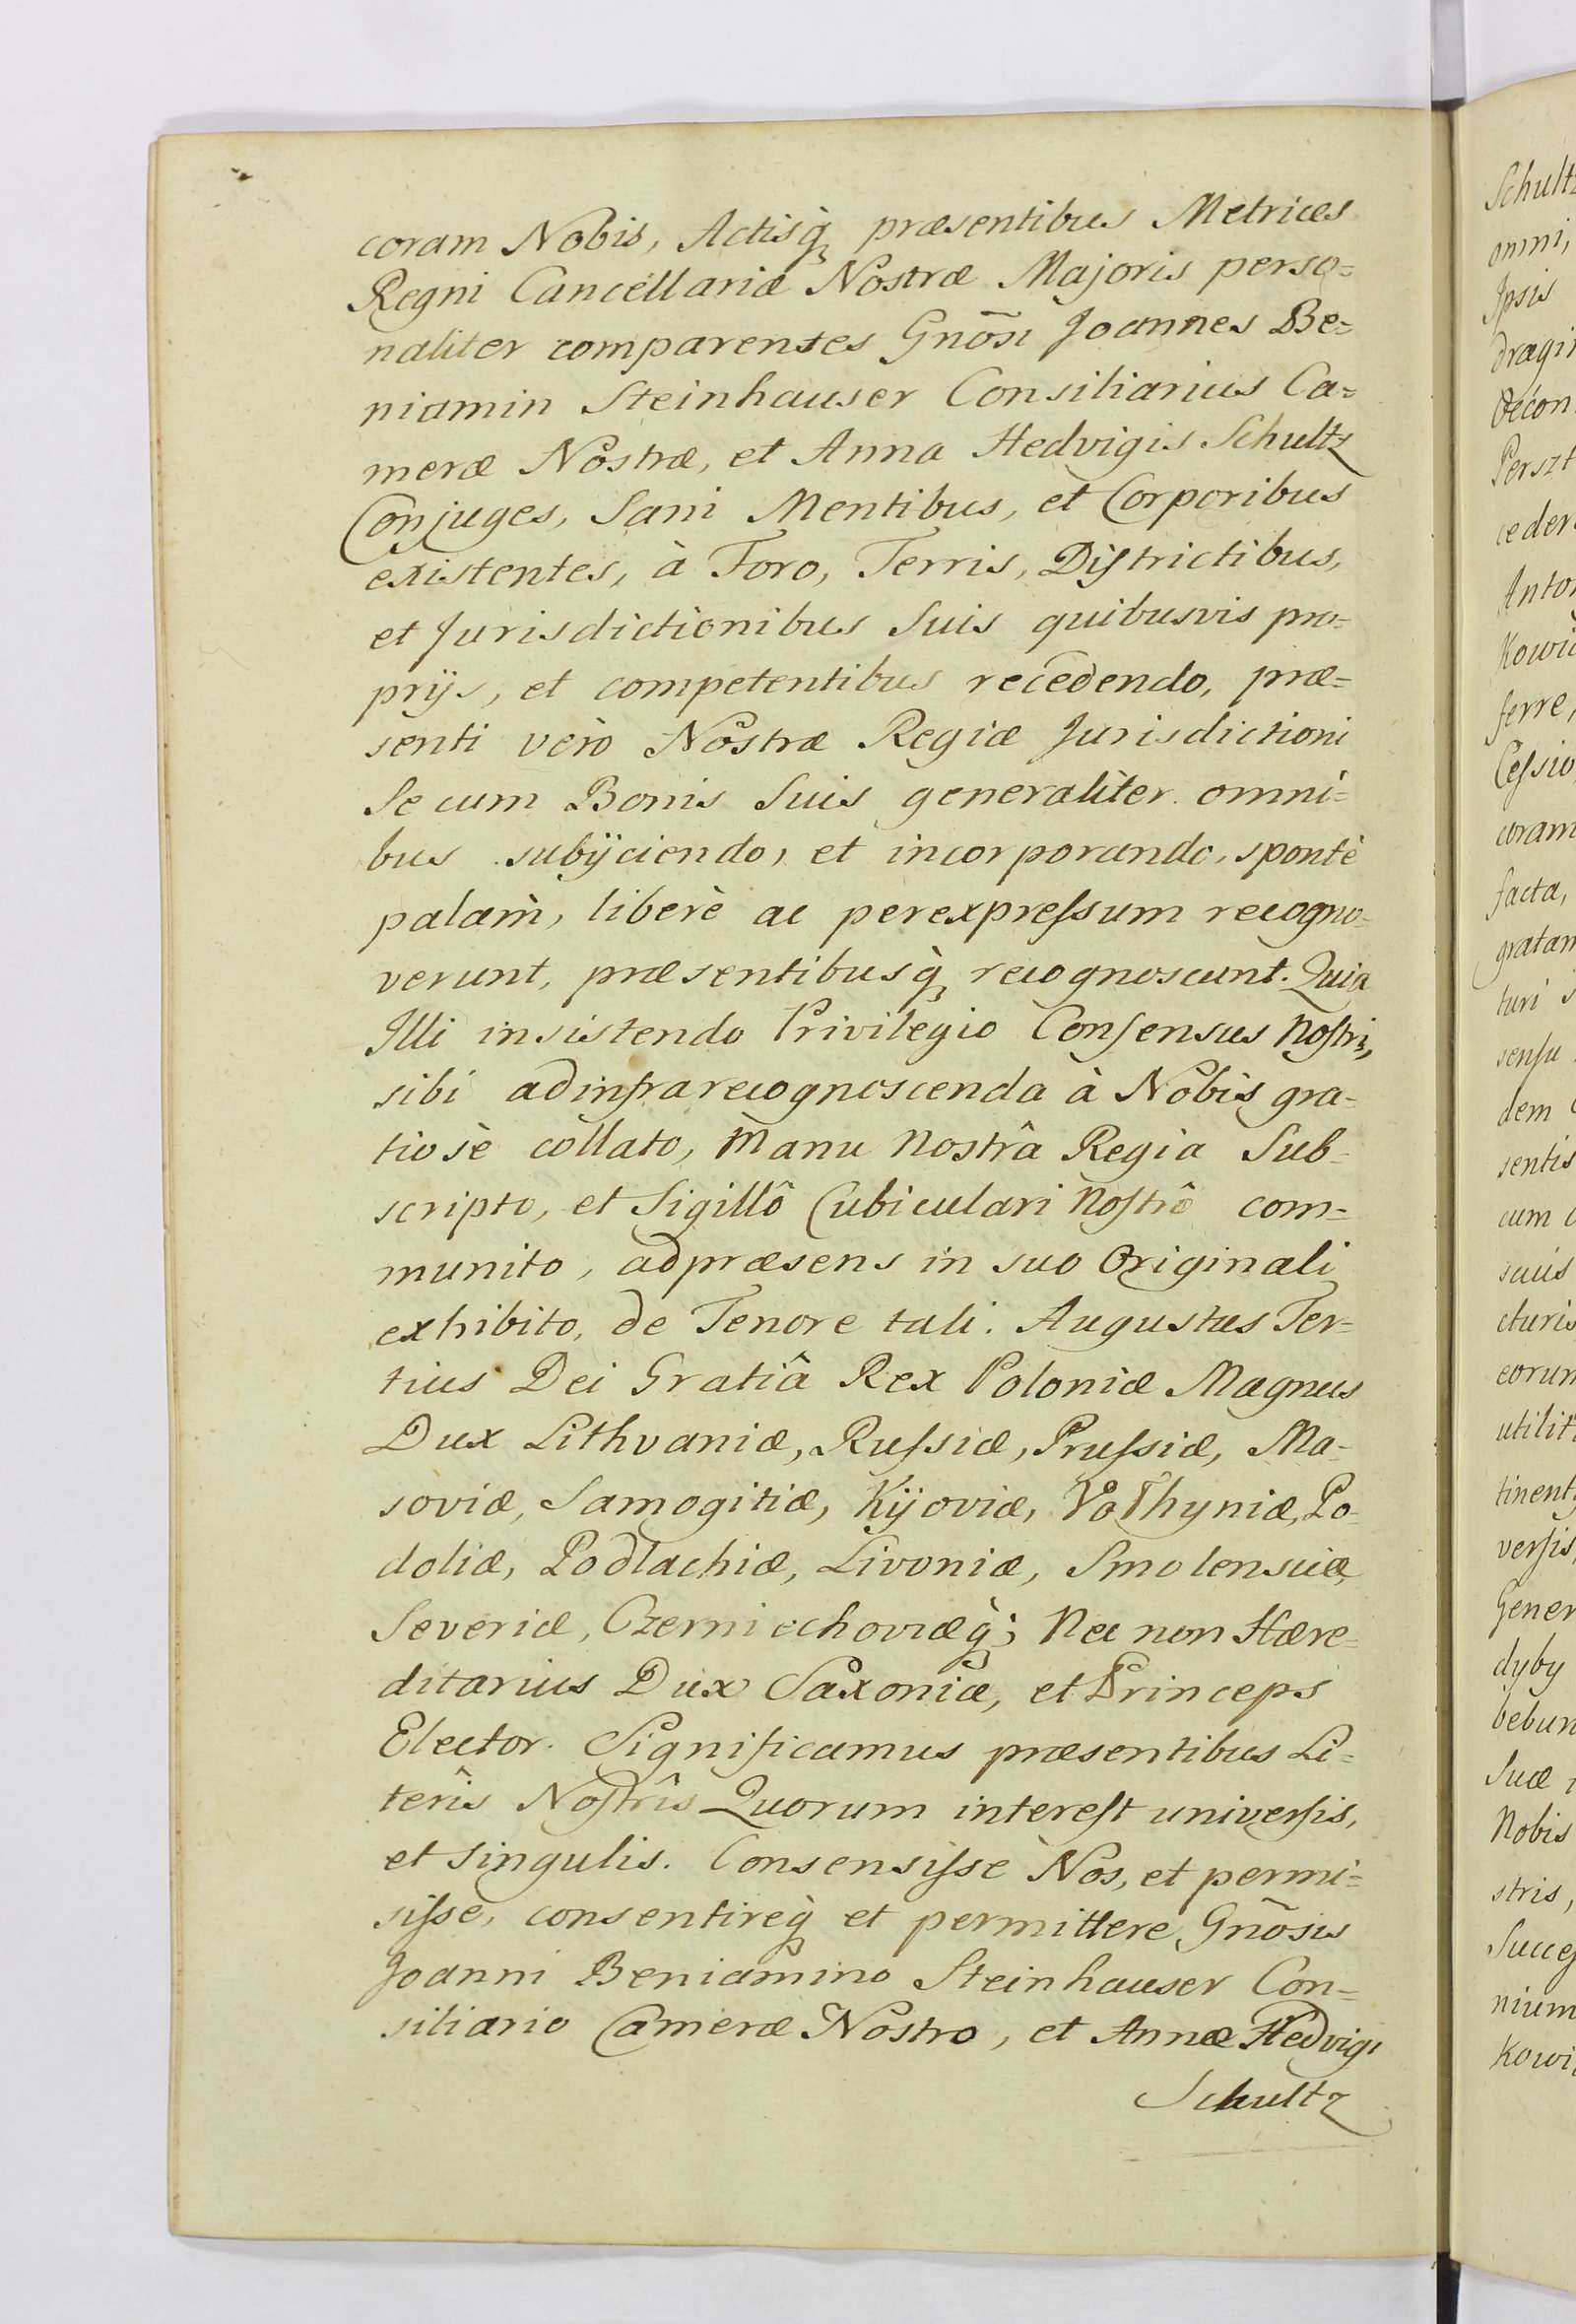 coram Nobis, Actisq̀ præsentibus Metrices
Regni Cancellariæ Nostræ Majoris perso=
naliter comparentes Gnõsi Joannes Be=
niamin Steinhauser Consiliarius Ca=
meræ Nostræ, et Anna Hedvigis Schultz
Conjuges, Sani Mentibus, et Corporibus
existentes, à Foro, Terris, Diſtrictibus,
et Jurisdictionibus Suis quibusvis pro=
prijs, et competentibus recedendo, præ=
senti verò Nostræ Regiæ Jurisdictioni
Se cum Bonis Suis generaliter omni=
bus subijciendo, et incorporando, spontè
palàm, liberè ac perexpreſsum recogno=
verunt, præsentibusq̀ recognoscunt. Quia
Illi insistendo Privilegio Conſensus Noſtri,
sibi ad infra recognoscenda à Nobis gra=
tiosè collato, Manu Nostrâ Regia Sub=
scripto, et Sigillô Cubiculari Noſtrô com=
munito, ad præsens in suo Originali
exhibito, de Tenore tali. Augustus Ter=
tius Dei Gratiâ Rex Poloniæ Magnus
Dux Lithvaniæ, Ruſsiæ, Pruſsiæ, Ma=
soviæ, Samogitiæ, Kijoviæ, Volhyniæ, Po=
doliæ, Podlachiæ, Livoniæ, Smolensciæ,
Severiæ, Czerniechoviæq̀; Nec non Hære=
ditarius Dux Saxoniæ, et Princeps
Elector. Significamus præsentibus Li=
terîs Noſtrîs Quorum intereſt univerſis,
et singulis. Consensiſse Nos, et permi=
siſse, consentireq̀ et permittere Gnõsis
Joanni Beniamino Steinhauser Con=
siliario Cameræ Nostro, et Annæ Hedvigi
Schultz